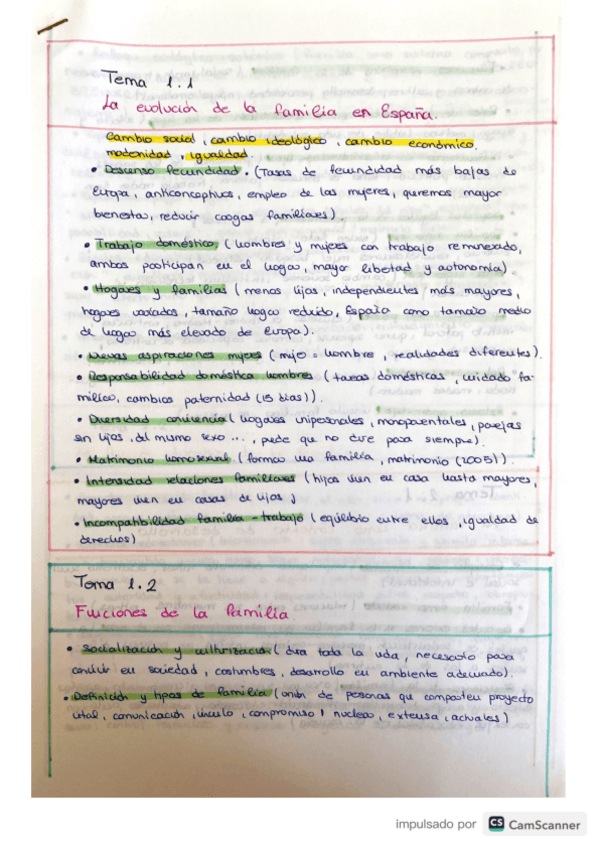 Tema 1.1
La evolución de la familia en España.
Cambio social, cambio ideológico, cambio económico,
modernidad, igualdad.
• Descenso fecundidad. (Tasas de fecundidad más bajas de
Europa, anticonceptivos, empleo de las mujeres, queremos mayor
bienestar, reducir cargas familiares).
• Trabajo doméstico, (hombres y mujeres con trabajo remunerado,
ambos participan en el hogar, mayor libertad y autonomía)
• Hogares y familias (menos hijos, independientes más mayores,
hogares variados, tamaño hogar reducido, España como tamaño medio
de hogar más elevado de Europa).
• Nuevas aspiraciones mujeres (mujer = hombre, realidades diferentes).
• Responsabilidad doméstica hombres (tareas domésticas, cuidado fa-
miliar, cambios paternidad (15 días)).
• Diversidad convivencial (hogares unipersonales, monoparentales, parejas
sin hijos, del mismo sexo ..., puede que no dure para siempre).
• Matrimonio homosexual. (forman una familia, matrimonio (2005)).
• Intensidad relaciones familiares (hijos viven en casa hasta mayores,
mayores viven en casas de hijos)
• Incompatibilidad familia-trabajo (equilibrio entre ellos, igualdad de
derechos)
Tema 1.2
Funciones de la familia.
• Socialización y culturización (dura toda la vida, necesario para
convivir en sociedad, costumbres, desarrollo en ambiente adecuado).
• Definición y tipos de familia (unión de personas que comparten proyecto
vital, comunicación, vínculo, compromiso / nuclear, extensa, actuales)
impulsado por CS CamScanner